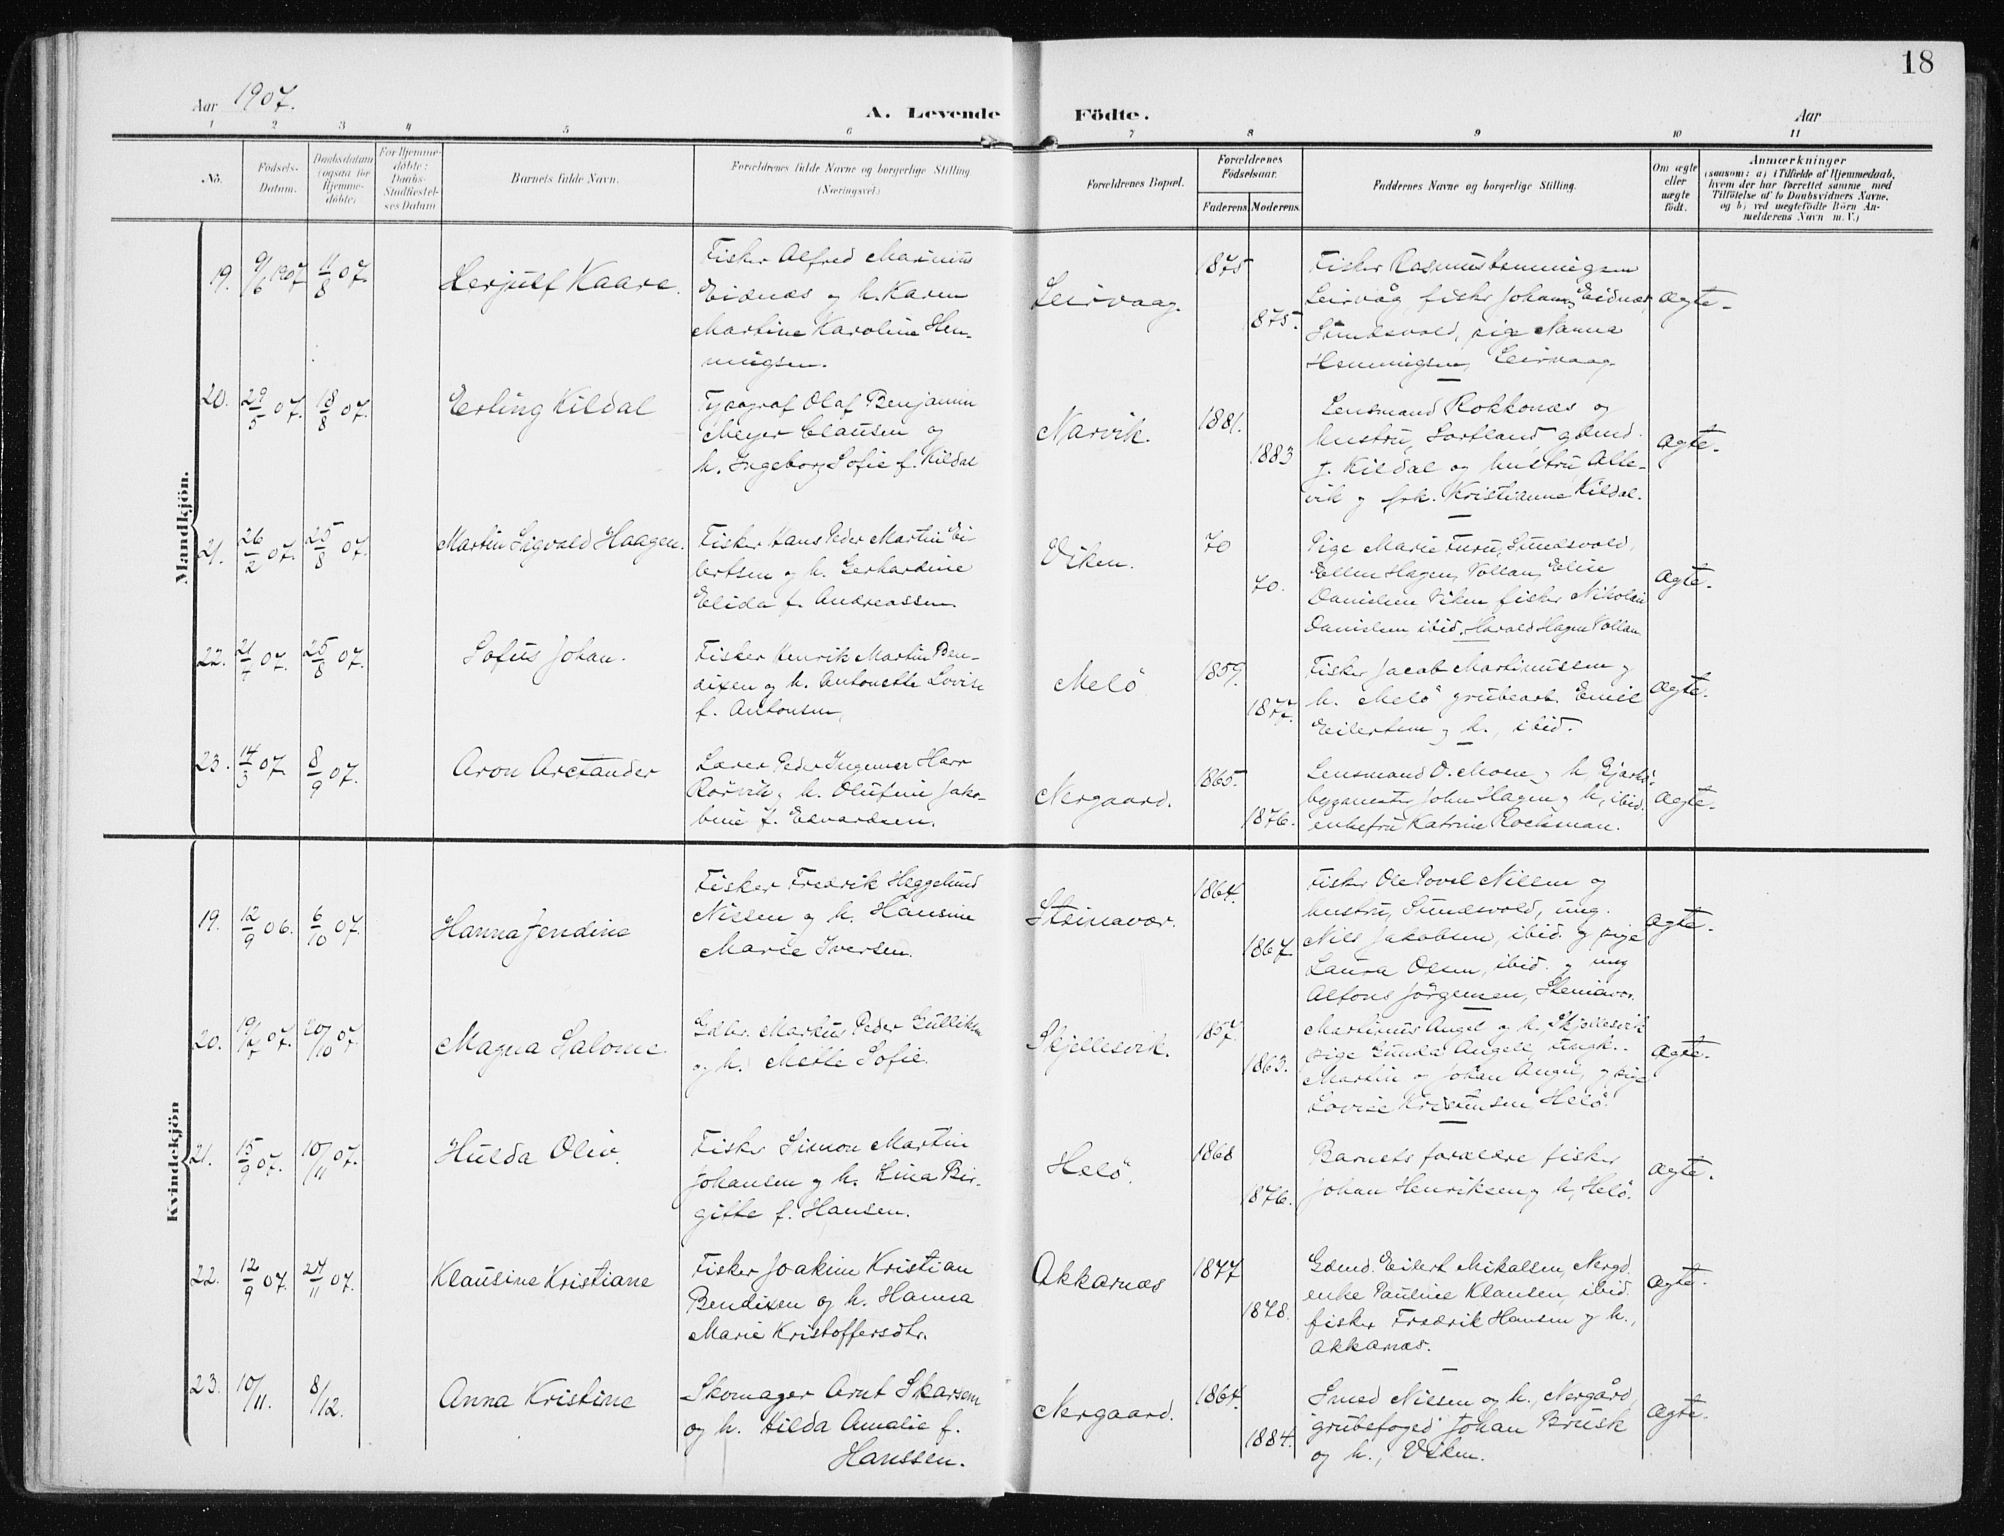 18
Aar 1907.
A. Levende Födte.
Aar
1 2 3 4 5 6 7 8 9 10 11
No.
Födsels-
Datum.
Daabsdatum
(ogsaa for
Hjemme-
döbte)
For Hjemme-
döbte:
Daabs-
Stadfæstel-
ses Datum
Barnets fulde Navn.
Forældrenes fulde Navne og borgerlige Stilling
(Næringsvei)
Forældrenes Bopæl.
Forældrenes
Födselsaar.
Faderens Moderens
Faddernes Navne og borgerlige Stilling.
Om ægte
eller
uægte
født.
Anmærkninger
(saasom: a) i Tilfælde af Hjemmedaab,
hvem der har forrettet samme med
Tilföielse af to Daabsvidners Navne,
og b) ved uægtefödte Börn An-
melderens Navn m. V.)
Mandkjön.
19. 9/6 1907 11/8 07. Herjulf Kaare.
Fisker Alfred Marinius
Eidnæs og h. Karen
Martine Karoline Hen-
ningsen.
Leirvaag. 1875 1875.
Fisker Rasmus Hemmingsen
Leirvåg, fisker Johan Eidnæs,
Sundsvold, pige Nanna
Hemmingsen, Leirvaag
Ægte.
20. 29/5 07. 18/8 07. Erling Kildal
Typograf Olaf Benjamin
Meyer Clausen og
h. Ingeborg Sofie f. Kildal
Narvik. 1881. 1883
Lensmand Rokkonæs og
hustru, Sortland, gdmd.
J. Kildal og hustru, Alle-
vik og frk. Kristianne Kildal.
Ægte.
21. 26/2 07. 25/8 07. Martin Sigvald Haagen.
Fisker Hans Peder Martin Ei-
lertsen og h. Gerhardine
Elida f. Andreassen.
Viken. 70 70.
Pige Marie Furu, Sundsvold,
Ellen Hagen, Vollan, Elin
Danielsen Viken fisker Nikolai
Danielsen ibid, Harald Hagen Vollan
Ægte.
22. 21/7 07. 25/8 07. Sofus Johan.
Fisker Henrik Martin Ben-
dixen og h. Antonette Lovise
f. Antonsen,
Melö 1859. 1877.
Fisker Jacob Martinussen og
h. Melö grubearb. Emil
Eilertsen og h., ibid.
Ægte.
23. 14/3 07. 8/9 07. Aron Arctander
Lærer Peder Ingemar Harr
Rörvik og h. Olufine Jako-
bine f. Edvardsen.
Nergaard. 1865. 1876.
Lensmand O. Moen og h,
bygmester John Hagen og h, ibid.
enkefru Katrine Rochman.
Ægte.
Kvindekjön
19. 12/9 06. 6/10 07. Hanna Jendine
Fisker Fredrik Heggelund
Nissen og h. Hansine
Marie Iversen.
Steinavær. 1864. 1867.
Fisker Ole Povel Nilsen og
hustru, Sundsvold, ung.
Nils Jakobsen, ibid. og pige
Laura Olsen, ibid. og ung
Alfons Jörgensen, Steinavær.
Ægte.
20. 19/7 07. 20/10 07. Magna Salome.
Gdbr. Markus Peder Gulliksen
og h. Mette Sofie.
Skjellesvik. 1857. 1863.
Martinus Angel og h. Skjellesvik
pige Gunda Angell, ungk.
Martin og Johan Angel, og pige
Lovise Kristensen, Helö.
Ægte.
21. 15/9 07. 10/11 07. Hulda Oliv.
Fisker Simon Martin
Johansen og h. Lina Bir-
gitte f. Hansen.
Helö. 1868 1876.
Barnets forældre fisker
Johan Henriksen og h, Helö.
Ægte.
22. 12/9 07. 24/11 07. Klausine Kristiane
Fisker Joakim Kristian
Bendixen og h. Hanna
Marie Kristoffersdtr.
Akkarnæs 1877 1878.
Gdmd. Eilert Mikalsen, Nergd.
enke Pauline Klausen, ibid.
fisker Fredrik Hansen og h.,
Akkarnæs.
Ægte.
23. 10/11. 8/12. Anna Kristine
Skomager Arnt Skarsem
og h. Hilda Amalie f.
Hanssen.
Nergaard. 1864. 1884.
Smed Nissen og h., Nergård,
grubefoged Johan Brusk
og h., Viken.
Ægte.